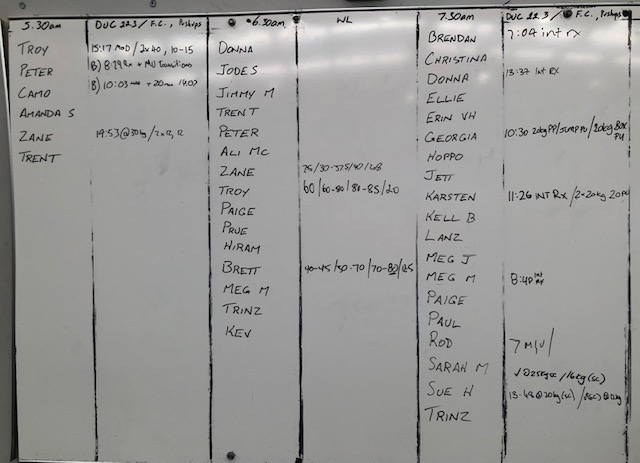 5.30am DUC 22.3 / F.C., Pushups
TROY 15:17 MOD / 2x40, 10-15
PETER B) 8:29 Rx + MU Transitions
CAMO B) 10:03
AMANDA S
ZANE 19:53 @30kg / 2x12, 12
TRENT
6.30am WL
DONNA
JODES
JIMMY M
TRENT
PETER
ALI MC
ZANE
TROY 60/60-80/80-85/20
PAIGE
PRUE
HIRAM
BRETT 40-45/50-70/70-80/125
MEG M
TRINZ
KEV
7.30am DUC 22.3 / F.C., Pushups
BRENDAN 7:04 int rx
CHRISTINA
DONNA 13:37 Int RX
ELLIE
ERIN VH
GEORGIA 10:30 20kg PP/JUMP PU/20kg Box PU
HOPPO
JETT
KARSTEN 11:26 INT Rx / 2x20kg 20
KELL B
LANZ
MEG J
MEG M 8:40 int rx
PAIGE
PAUL
ROD 7 M/U/
SARAH M √ @25kg sc / 16kg (sc)
SUE H 13:48 @20kg (sc) /
TRINZ